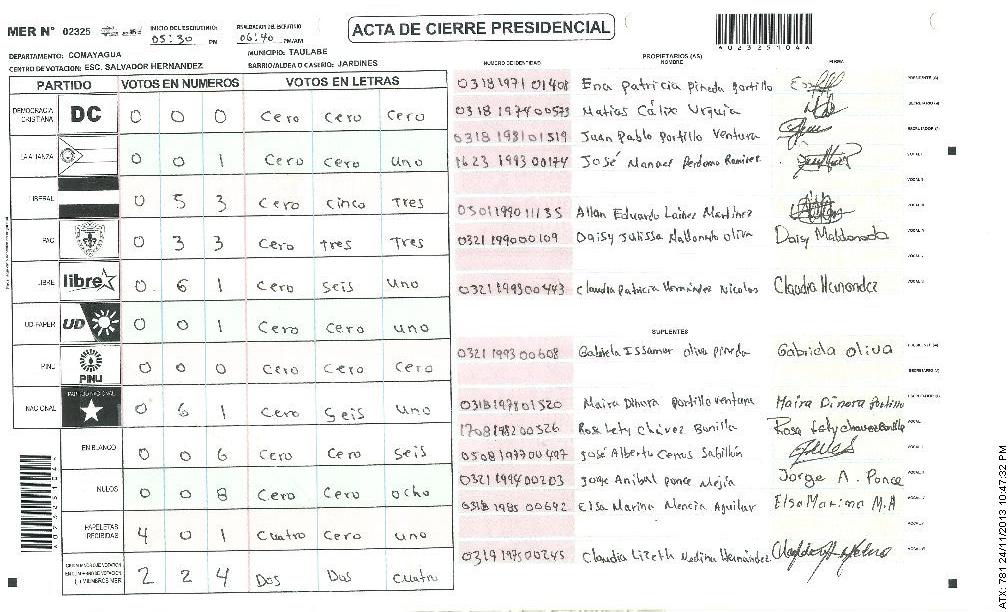 ACTA DE CIERRE PRESIDENCIAL
MER N° 02325
INICIO DEL ESCRUTINIO: 05:30 PM
FINALIZACION DEL ESCRUTINIO 06:40 PM/AM
A0232510AA
DEPARTAMENTO: COMAYAGUA
MUNICIPIO: TAULABE
CENTRO DE VOTACION: ESC. SALVADOR HERNANDEZ
BARRIO/ALDEA O CASERIO: JARDINES
PARTIDO VOTOS EN NUMEROS VOTOS EN LETRAS
DEMOCRACIA CRISTIANA DC 0 0 0 Cero Cero Cero
LA ALIANZA 0 0 1 Cero Cero uno
LIBERAL 0 5 3 Cero cinco Tres
PAC 0 3 3 Cero tres Tres
LIBRE libre 0 6 1 Cero seis uno
UD-FAPER UD 0 0 1 Cero Cero uno
PINU PINU 0 0 0 Cero Cero Cero
NACIONAL PARTIDO NACIONAL 0 6 1 Cero Seis uno
EN BLANCO 0 0 6 Cero Cero seis
NULOS 0 0 8 Cero Cero ocho
PAPELETAS RECIBIDAS 4 0 1 Cuatro Cero uno
2 2 4 Dos Dos cuatro
PROPIETARIOS (AS)
NUMERO DE IDENTIDAD NOMBRE FIRMA
0318 1971 01408 Ena Patricia pineda portillo
0318 1974 00573 Matias Cálix Urquia
0318 1981 01519 Juan Pablo Portillo Ventura
1623 1993 00174 José Manuel Perdomo Ramirez
0501 1990 11135 Allan Eduardo Lainez Martinez
0321 1990 00109 Daisy Julissa Maldonado oliva Daisy Maldonado
0321 1993 00443 Claudia Patricia Hernández Nicolas Claudia Hernandez
SUPLENTES
0321 1993 00608 Gabriela Issamar oliva pineda Gabriela oliva
0318 1978 01520 Maira Dinora portillo ventura Maira Dinora portillo
1708 1982 00326 Rosa Lety Chávez Bonilla Rosa Lety chavez Bonilla
0508 1977 00497 José Alberto Cerros Sabillón
0321 1994 00203 Jorge Anibal ponce Mejía Jorge A. Ponce
0318 1985 00692 Elsa Marina Mencia Aguilar Elsa Marina M.A
0319 1975 00245 Claudia Lizeth Medina Hernández
ATX: 781 24/11/2013 10:47:32 PM